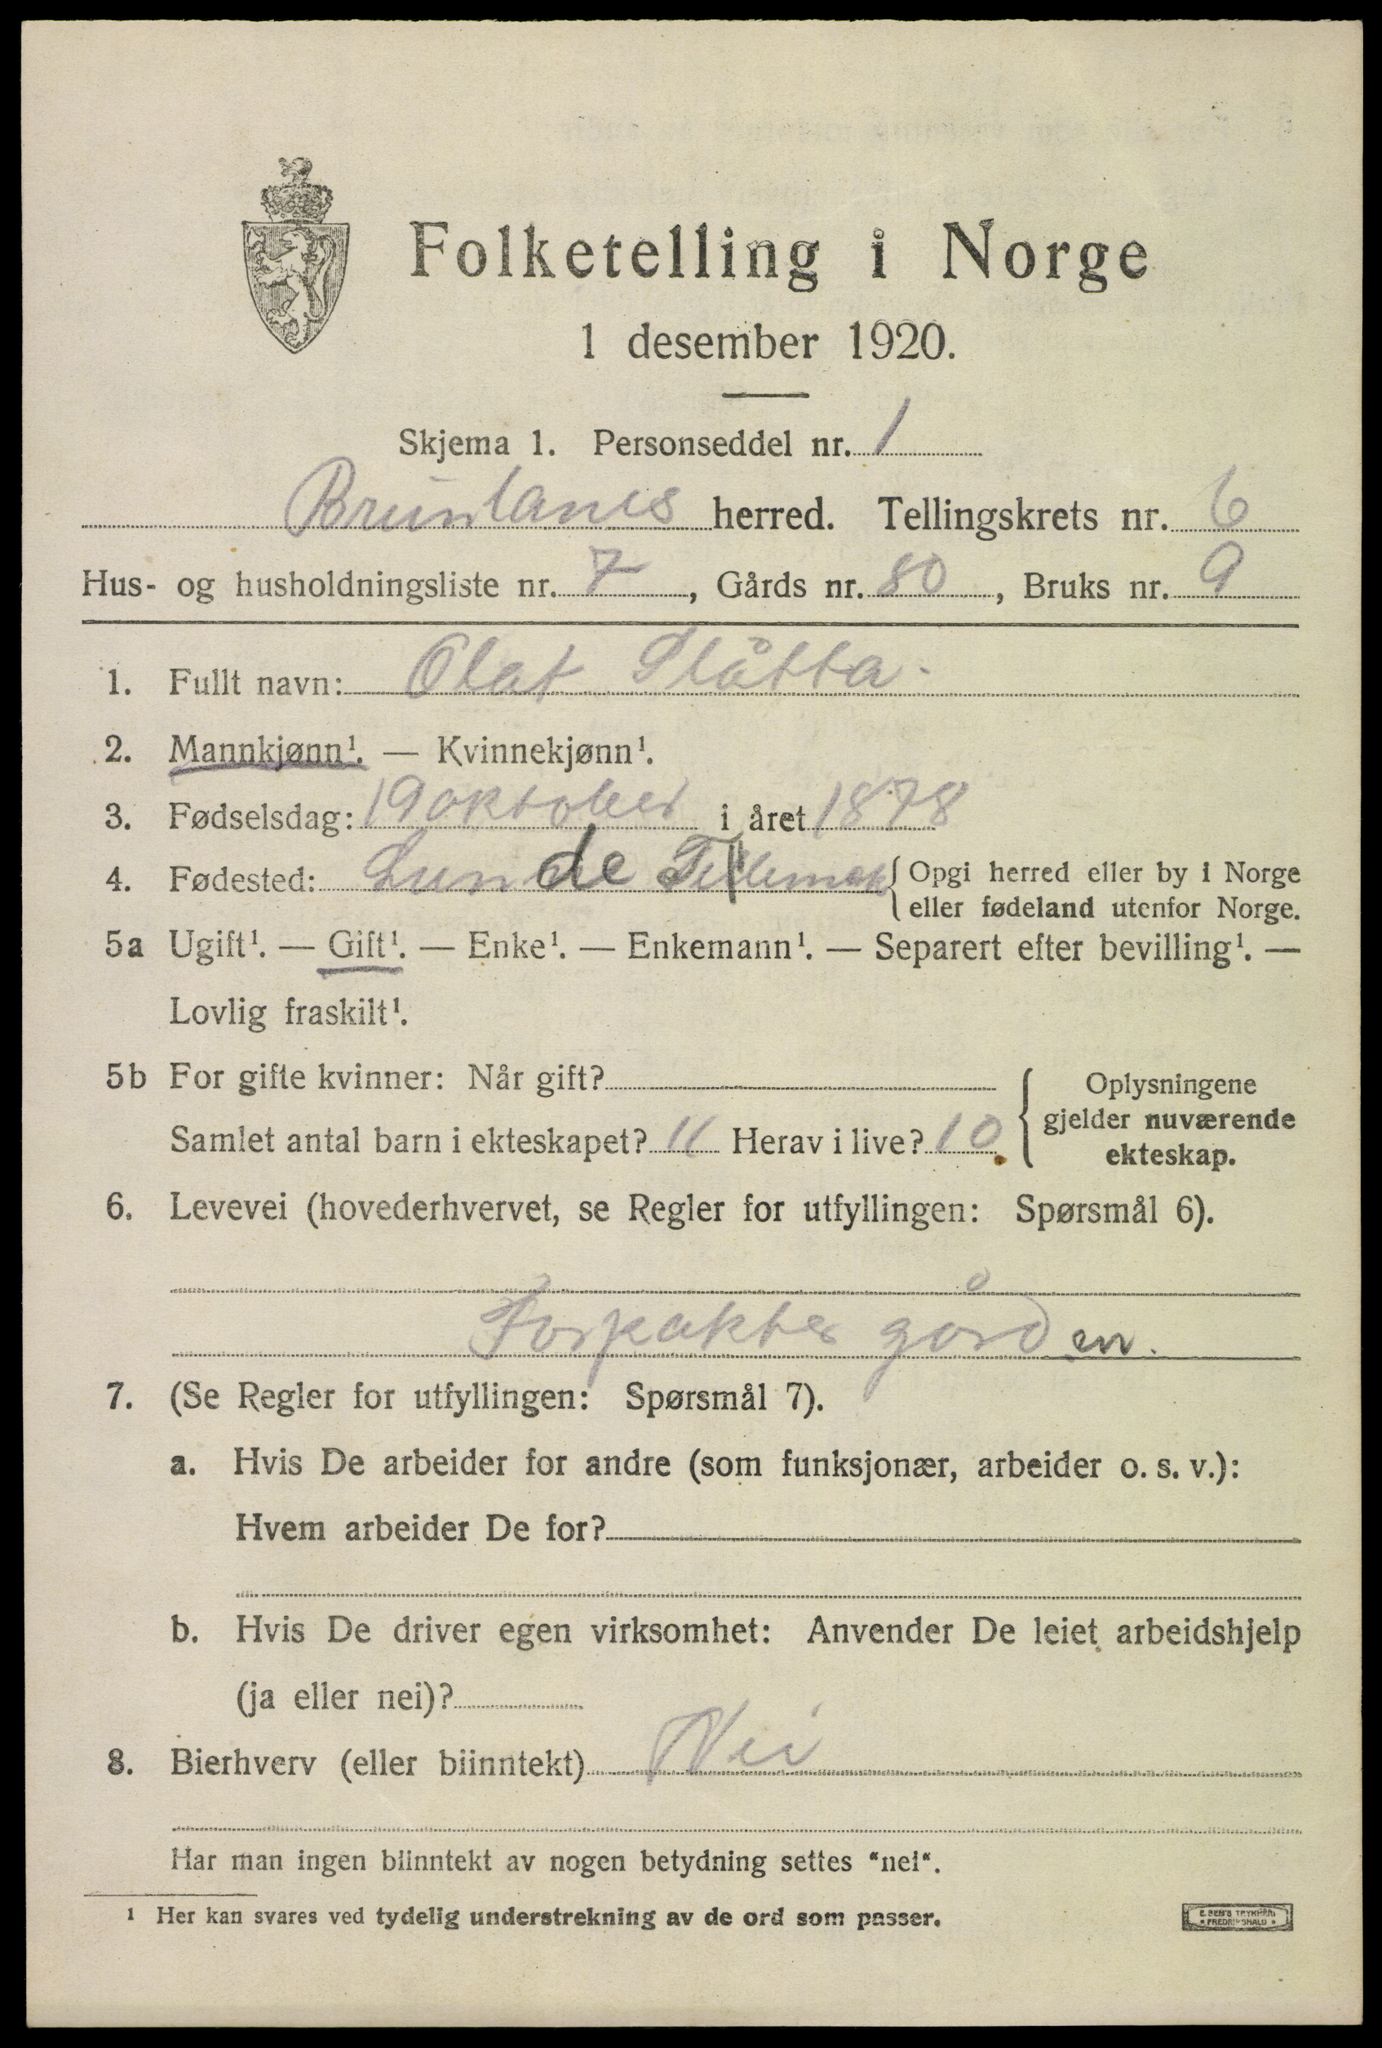 Folketelling i Norge
1 desember 1920.
Skjema 1. Personseddel nr. 1
Brunlanes herred. Tellingskrets nr. 6
Hus- og husholdningsliste nr. 7, Gårds nr. 80, Bruks nr. 9
1. Fullt navn: Olaf Slåtta.
2. Mannkjønn¹. — Kvinnekjønn¹.
3. Fødselsdag: 19 oktober i året 1878
4. Fødested: Lunde Opgi herred eller by i Norge
eller fødeland utenfor Norge.
5a Ugift¹. — Gift¹. — Enke¹. — Enkemann¹. — Separert efter bevilling¹. —
Lovlig fraskilt¹.
5b For gifte kvinner: Når gift?
Samlet antal barn i ekteskapet? 11 Herav i live? 10
Oplysningene
gjelder nuværende
ekteskap.
6. Levevei (hovederhvervet, se Regler for utfyllingen: Spørsmål 6).
Forpakter gården.
7. (Se Regler for utfyllingen: Spørsmål 7).
a. Hvis De arbeider for andre (som funksjonær, arbeider o. s. v.):
Hvem arbeider De for?
b. Hvis De driver egen virksomhet: Anvender De leiet arbeidshjelp
(ja eller nei)?
8. Bierhverv (eller biinntekt) Nei
Har man ingen biinntekt av nogen betydning settes "nei".
¹ Her kan svares ved tydelig understrekning av de ord som passer.